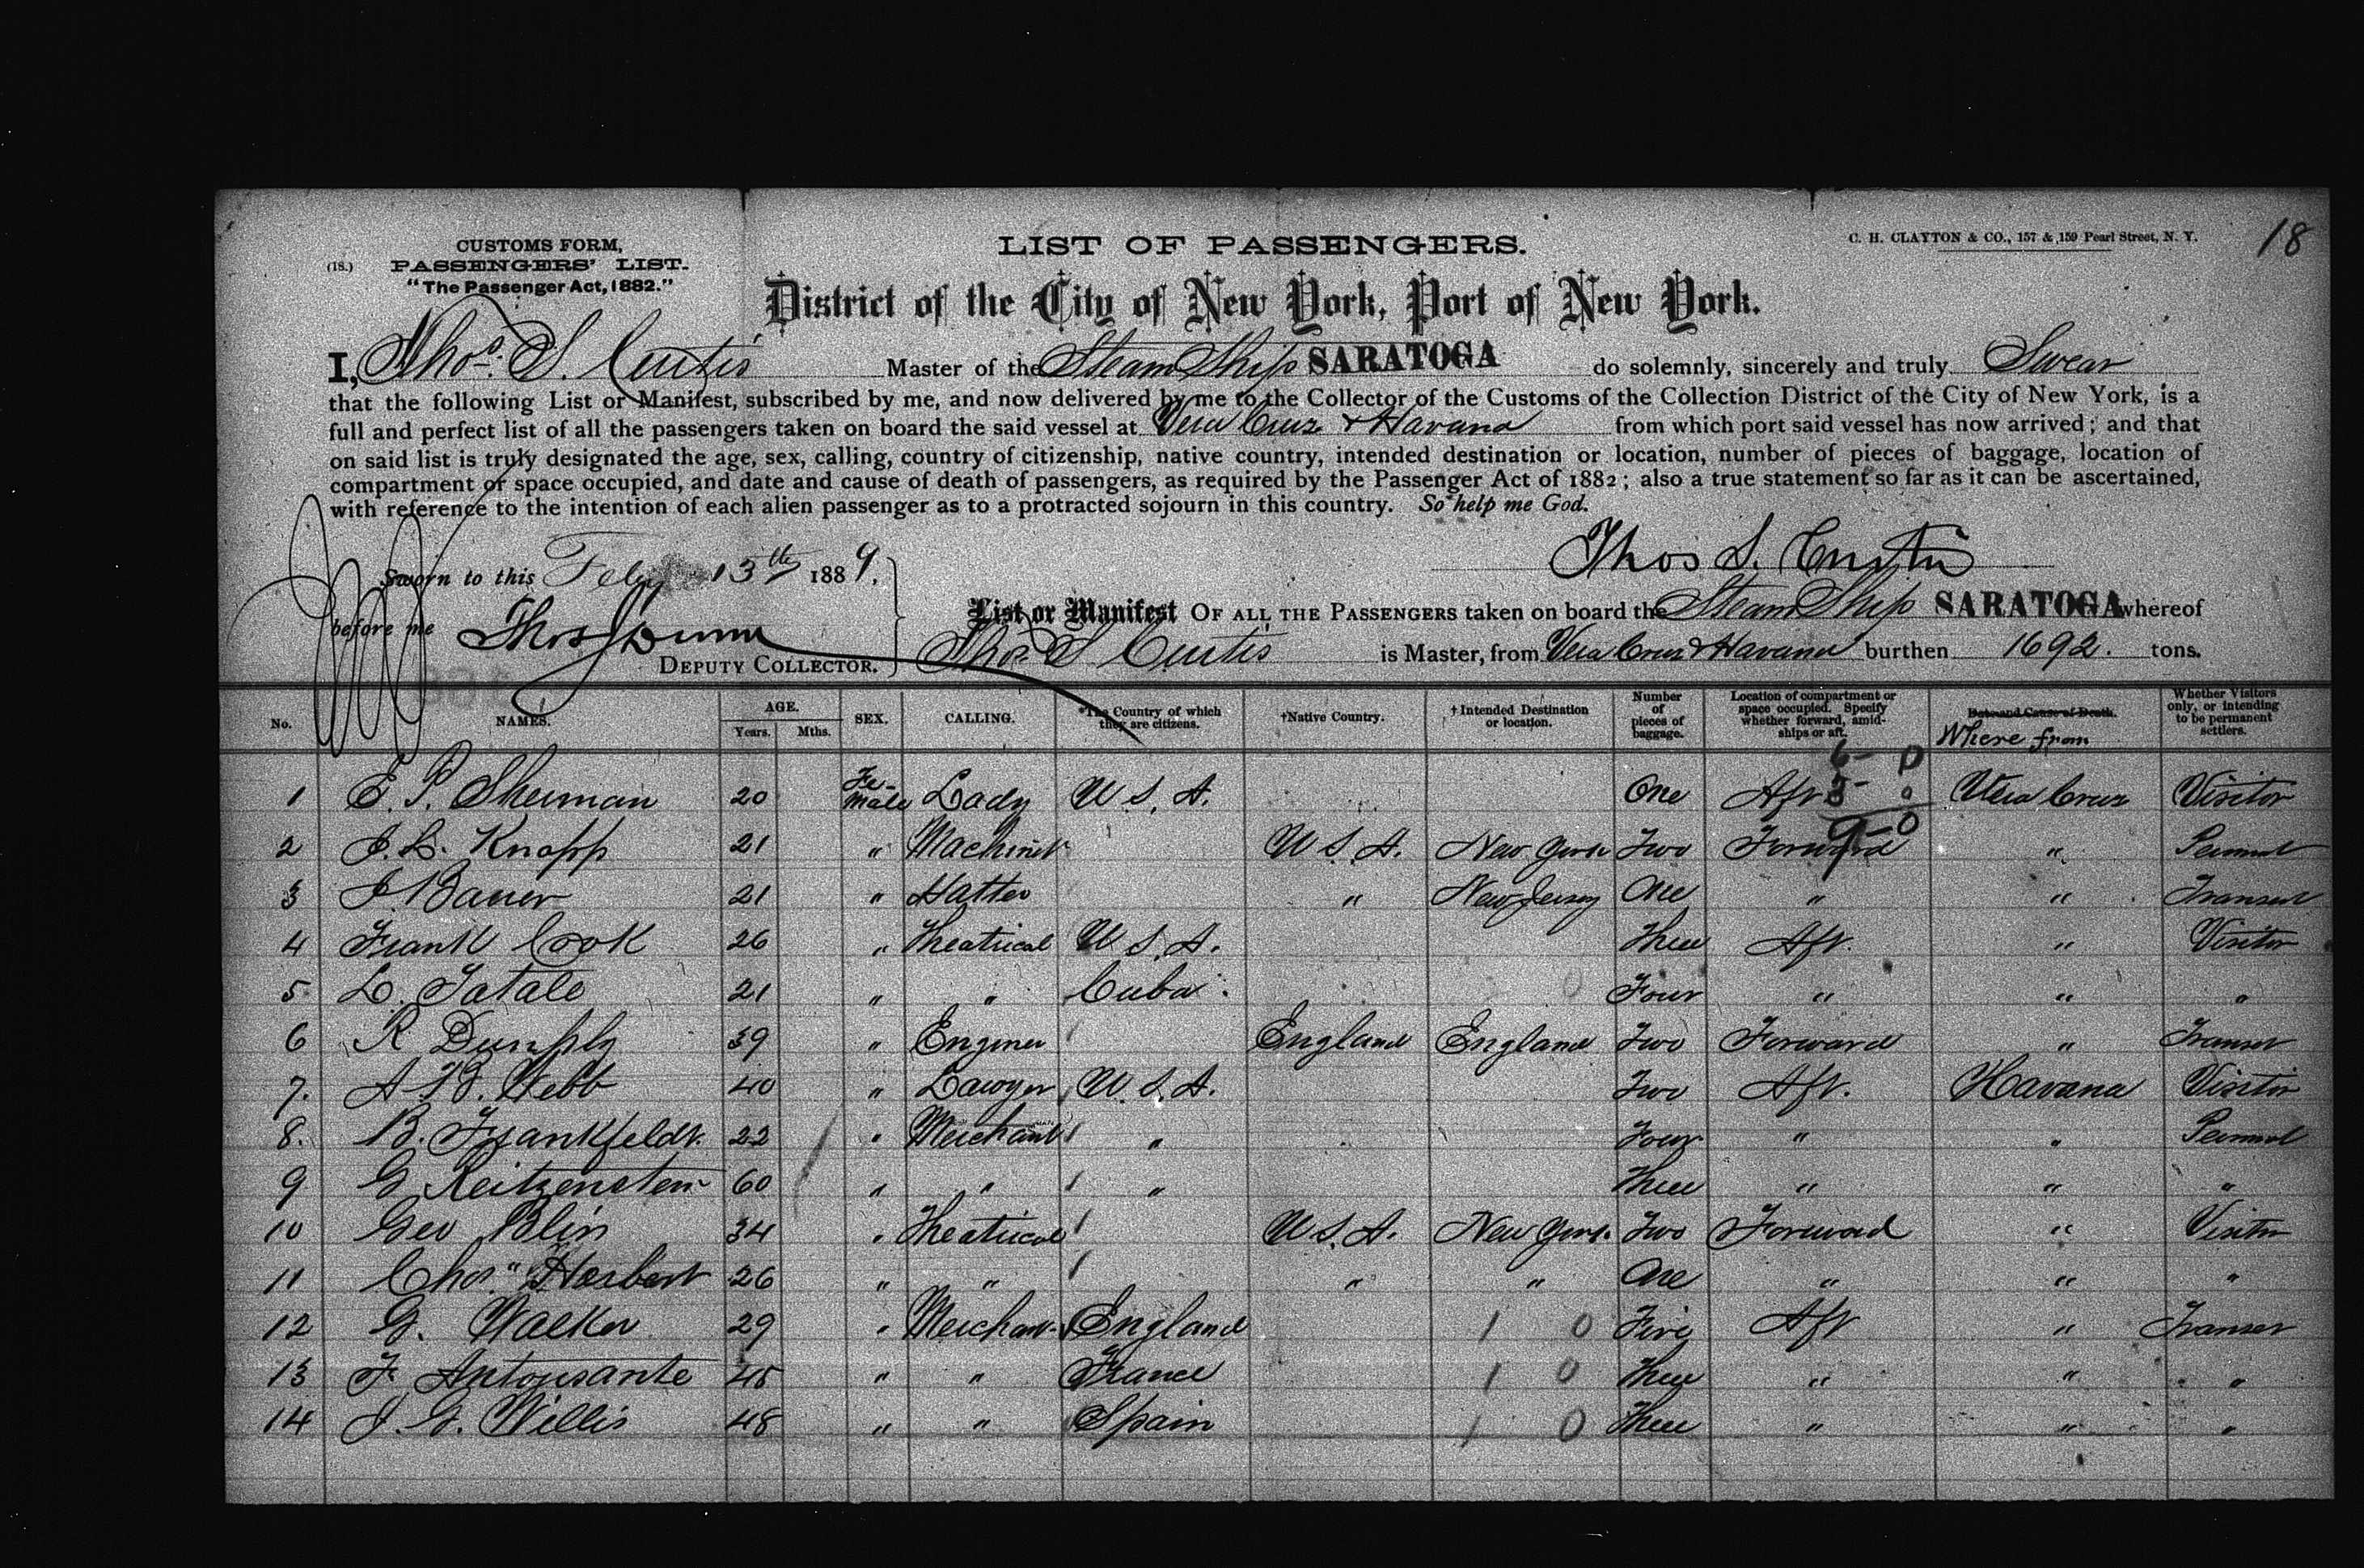 18
CUSTOMS FORM,
(18.) PASSENGERS' LIST.
"The Passenger Act, 1882."
LIST OF PASSENGERS.
C. H. CLAYTON & CO., 157 & 159 Pearl Street, N. Y.
District of the City of New York, Port of New York.
I, Thos. S. Curtis Master of the Steam Ship SARATOGA do solemnly, sincerely and truly Swear
that the following List or Manifest, subscribed by me, and now delivered by me to the Collector of the Customs of the Collection District of the City of New York, is a
full and perfect list of all the passengers taken on board the said vessel at Vera Cruz & Havana from which port said vessel has now arrived; and that
on said list is truly designated the age, sex, calling, country of citizenship, native country, intended destination or location, number of pieces of baggage, location of
compartment or space occupied, and date and cause of death of passengers, as required by the Passenger Act of 1882; also a true statement so far as it can be ascertained,
with reference to the intention of each alien passenger as to a protracted sojourn in this country. So help me God.
Thos S. Curtis
Sworn to this Feby 13th 1889.
before me Thos Dunn
DEPUTY COLLECTOR.
List or Manifest OF ALL THE PASSENGERS taken on board the Steam Ship SARATOGA whereof
Thos. S Curtis is Master, from Vera Cruz & Havana burthen 1692. tons.
No. NAMES. AGE. Years. Mths. SEX. CALLING. *The Country of which they are citizens. †Native Country. †Intended Destination or location. Number of pieces of baggage. Location of compartment or space occupied. Specify whether forward, amidships or aft. Date and Cause of Death. Where from Whether Visitors only, or intending to be permanent settlers.
6- 0
1 E. P. Sherman 20 Fe-male Lady U S. A. One Aft 3- 0 Vera Cruz Visitor
9-0
2 J. L. Knapp 21 " Machinist U S. A. New York Two Forward "
3 J. Bauer 21 " Hatter " New Jersey One " "
4 Frank Cook 26 " Theatrical U S. A. Three Aft. " Visitor
5 L. Tatale 21 " " Cuba. Four " " "
6 R Dunphy 39 " Enginer England England Two Forward "
7. A. B. Webb 40 " Lawyer U. S. A. Two Aft. Havana Visitor
8. B. Frankfeldt. 22 " Merchant " Four " "
9 G Reitzenstein 60 " " " Three " " "
10 Geo Blin 34 " Theatrical U S. A. New York. Two Forward " Visitor
11 Chas. Herbert 26 " " " " One " " "
12 G. Walker 29 " Merchant England 1 0 Five Aft "
13 F. Antonsante 45 " " France 1 0 Three " " "
14 J. G. Willis 48 " " Spain 1 0 Three " " "